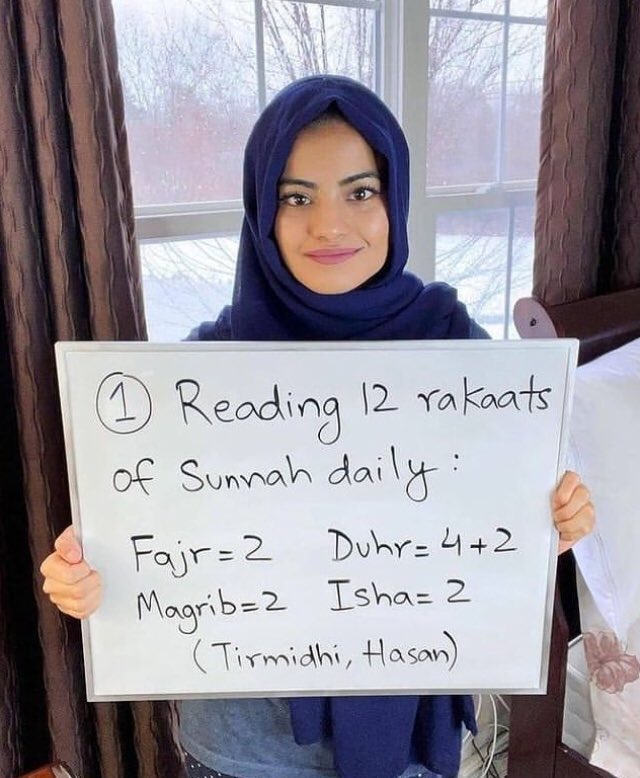 ① Reading 12 rakaats
of Sunnah daily:
Fajr=2 Duhr=4+2
Magrib=2 Isha=2
(Tirmidhi, Hasan)